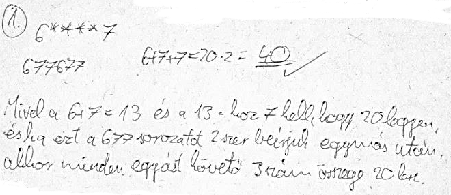 1.
6****7
677677 6+7+7=20·2=40 ✓
Mivel a 6+7=13 és a 13-hoz 7 kell, hogy 20 legyen,
és ha ezt a 677 sorozatot 2szer beírjuk egymás után,
akkor minden egyást követő 3 szám összege 20 lesz.